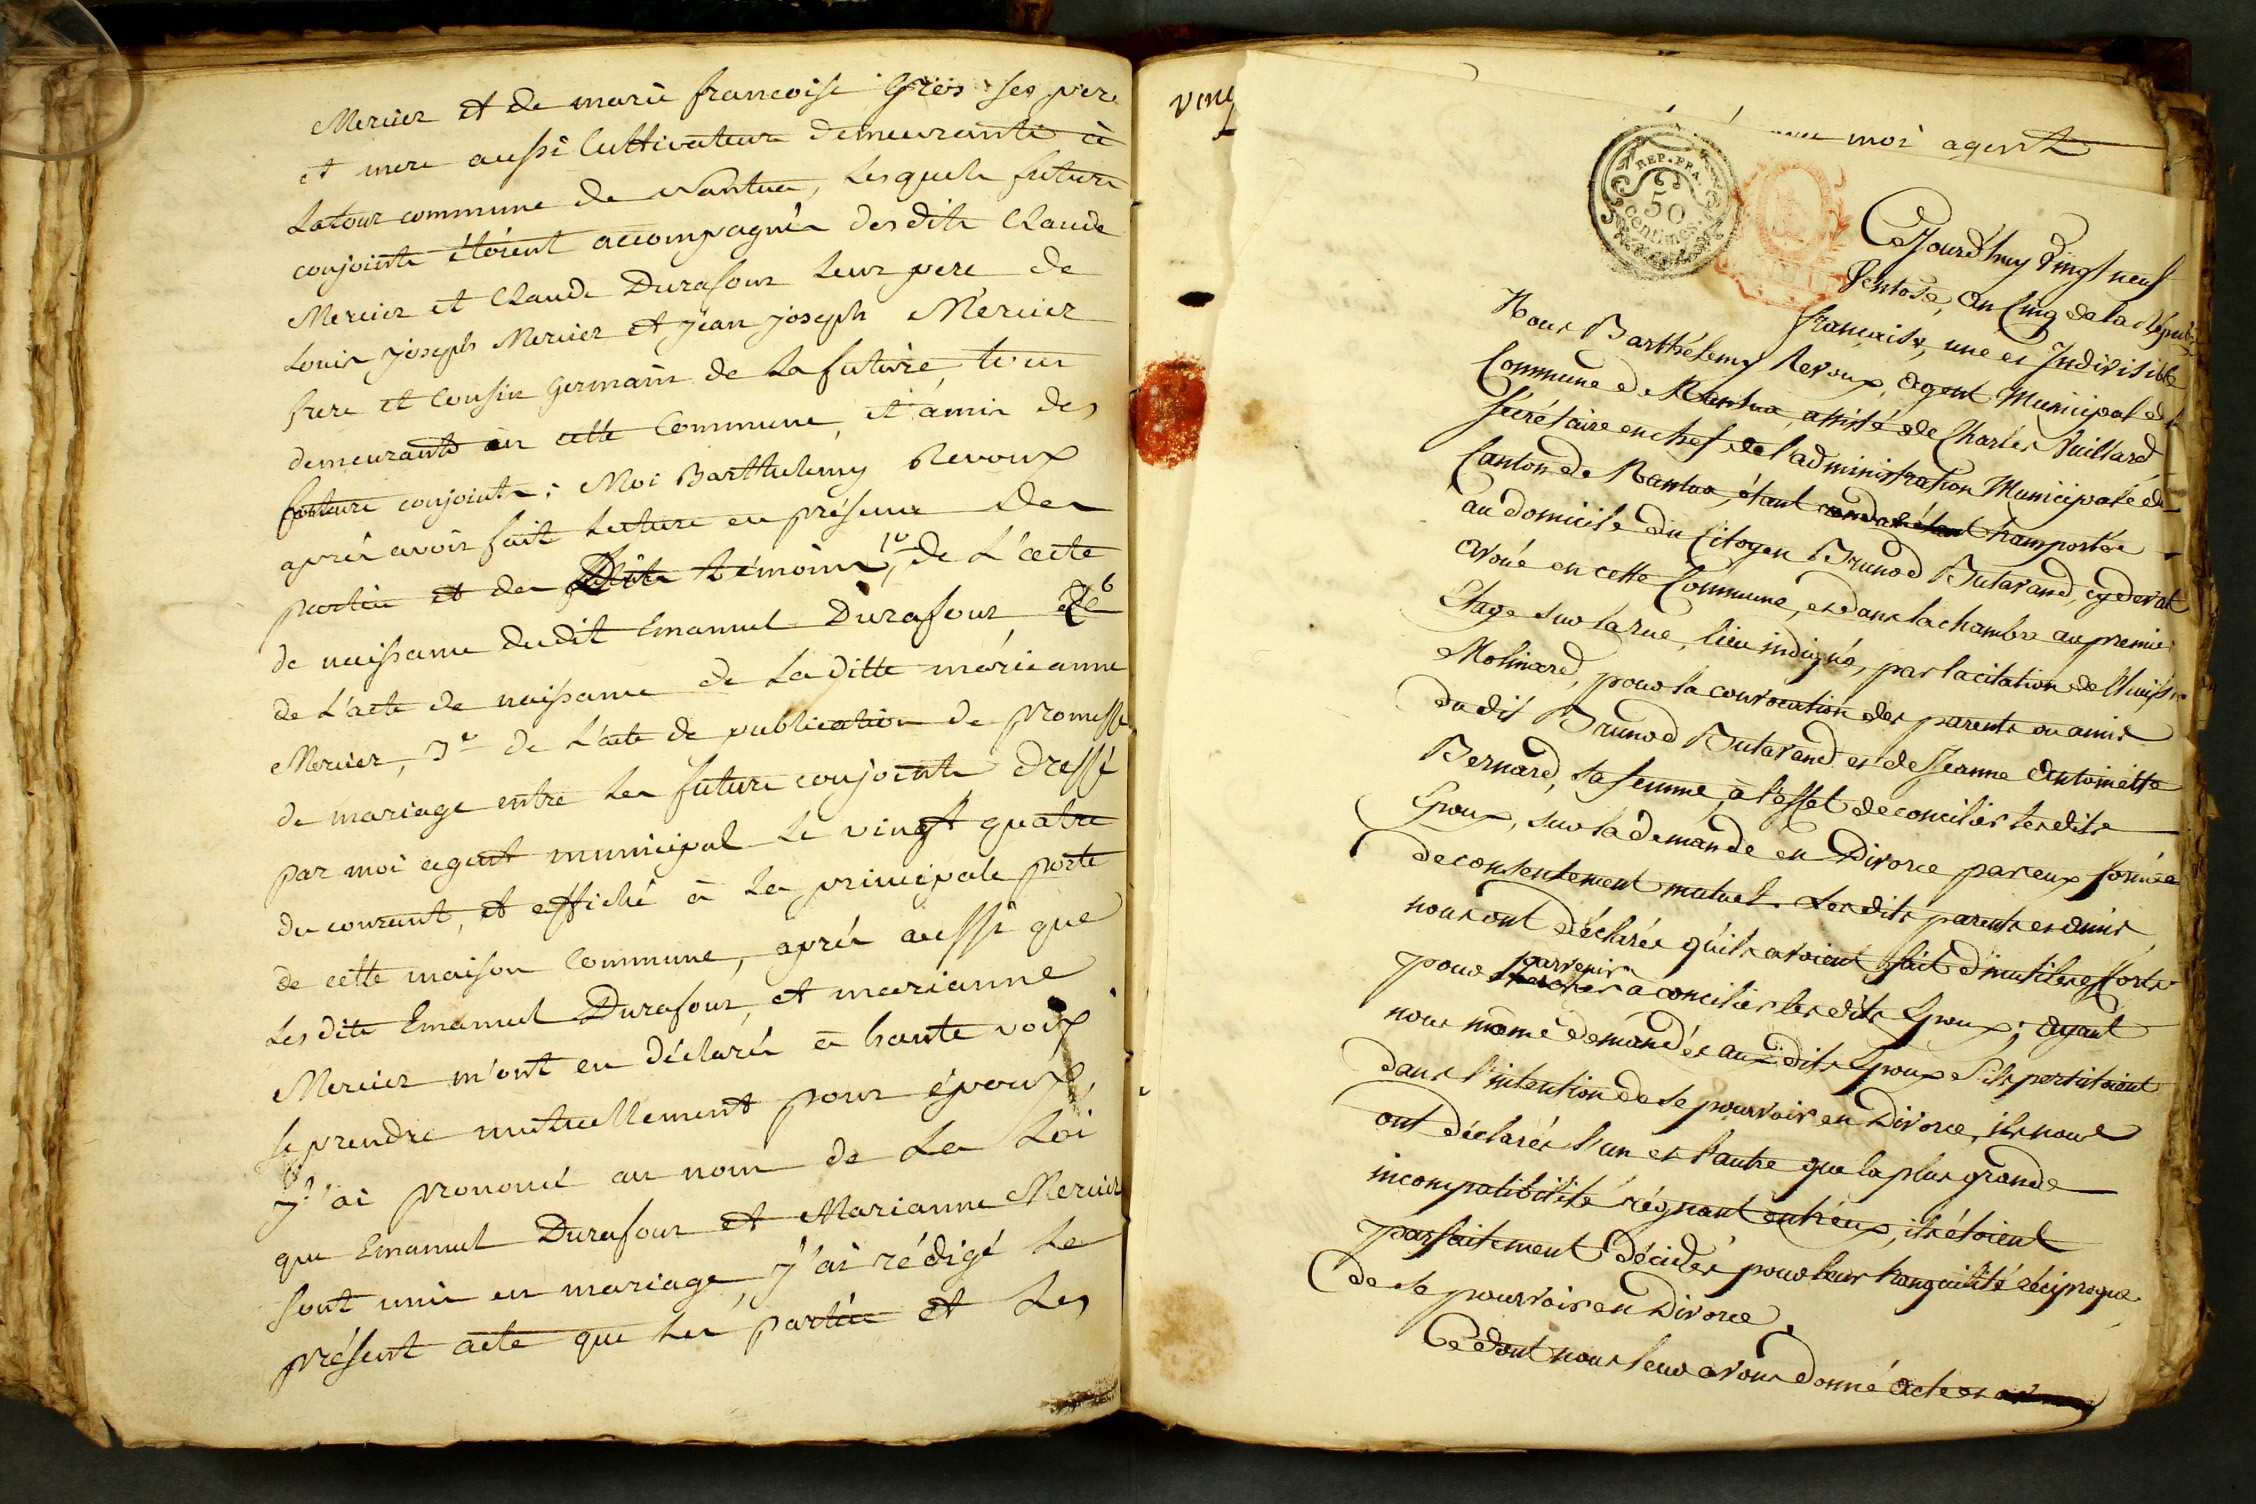 Mercier et de marie francoise Gros ses pere
et mere aussi Cultivateurs demeurants à
Latour commune de Nantua, Lesquels futurs
conjoints étoient accompagnés desdits Claude
Mercier et Claude Durafour Leurs pere de
Louis joseph Mercier et jean joseph Mercier
frere et Cousin Germain de la future, tous
demeurants en cette Commune, et amis des
futurs conjoints; Moi Barthelemy Revoux
après avoir fait lecture en présence des
parties et des dits témoins, 1º de L'acte
de naissance dudit Emanuel Durafour, 2º
de L'acte de naissance de Laditte marianne
Mercier, 3º de L'acte de publication de promesse
de mariage entre les futurs conjoints dressé
par moi agent municipal le vingt quatre
du courant, et affiché à la principale porte
de cette maison Commune, après aussi que
Lesdits Emanuel Durafour, et marianne
Mercier m'ont eu déclaré à haute voix
se prendre mutuellement pour époux,
j'ai prononcé au nom de la Loi
que Emanuel Durafour et Marianne Mercier
sont unis en mariage, j'ai rédigé le
présent acte que les parties et les
ving
moi agent
REP. FRA.
50
centimes
Cejourd'huy vingt neuf
Ventose, an Cinq de la Répub.
française, une et Indivisible
Nous Barthélemy Revoux, agent Municipal de la
Commune de Nantua, assisté de Charles Vuillard
Sécrétaire en chef de l'administration Municipale du
Canton de Nantua, étant transportés
au domicile du Citoyen Brunod Butavand, cydevant
avoué en cette Commune, et dans la chambre au premier
Etage sur la rue, lieu indiqué, par la citation de l'huissier
Molinard, pour la convocation des parents ou amis
dudit Brunod Butavand et de Jeanne Antoinette
Bernard, sa femme, à l'effet de concilier lesdits
Epoux, sur la demande en Divorce par eux formée
de consentement mutuel. Lesdits parents et amis
nous ont déclarés qu'ils avoient fait d'inutiles efforts
pour parvenir a concilier lesdits Epoux; ayant
nous même demandés auxdits Epoux S'ils persistoient
dans l'intention de se pourvoir en Divorce, ils nous
ont déclarés l'un et l'autre que la plus grande
incompatibilité régnant entr'eux, ils étoient
parfaitement décidés pour leur tranquilité réciproque
de se pourvoir en Divorce.
Ce dont nous leur avons donné acte et